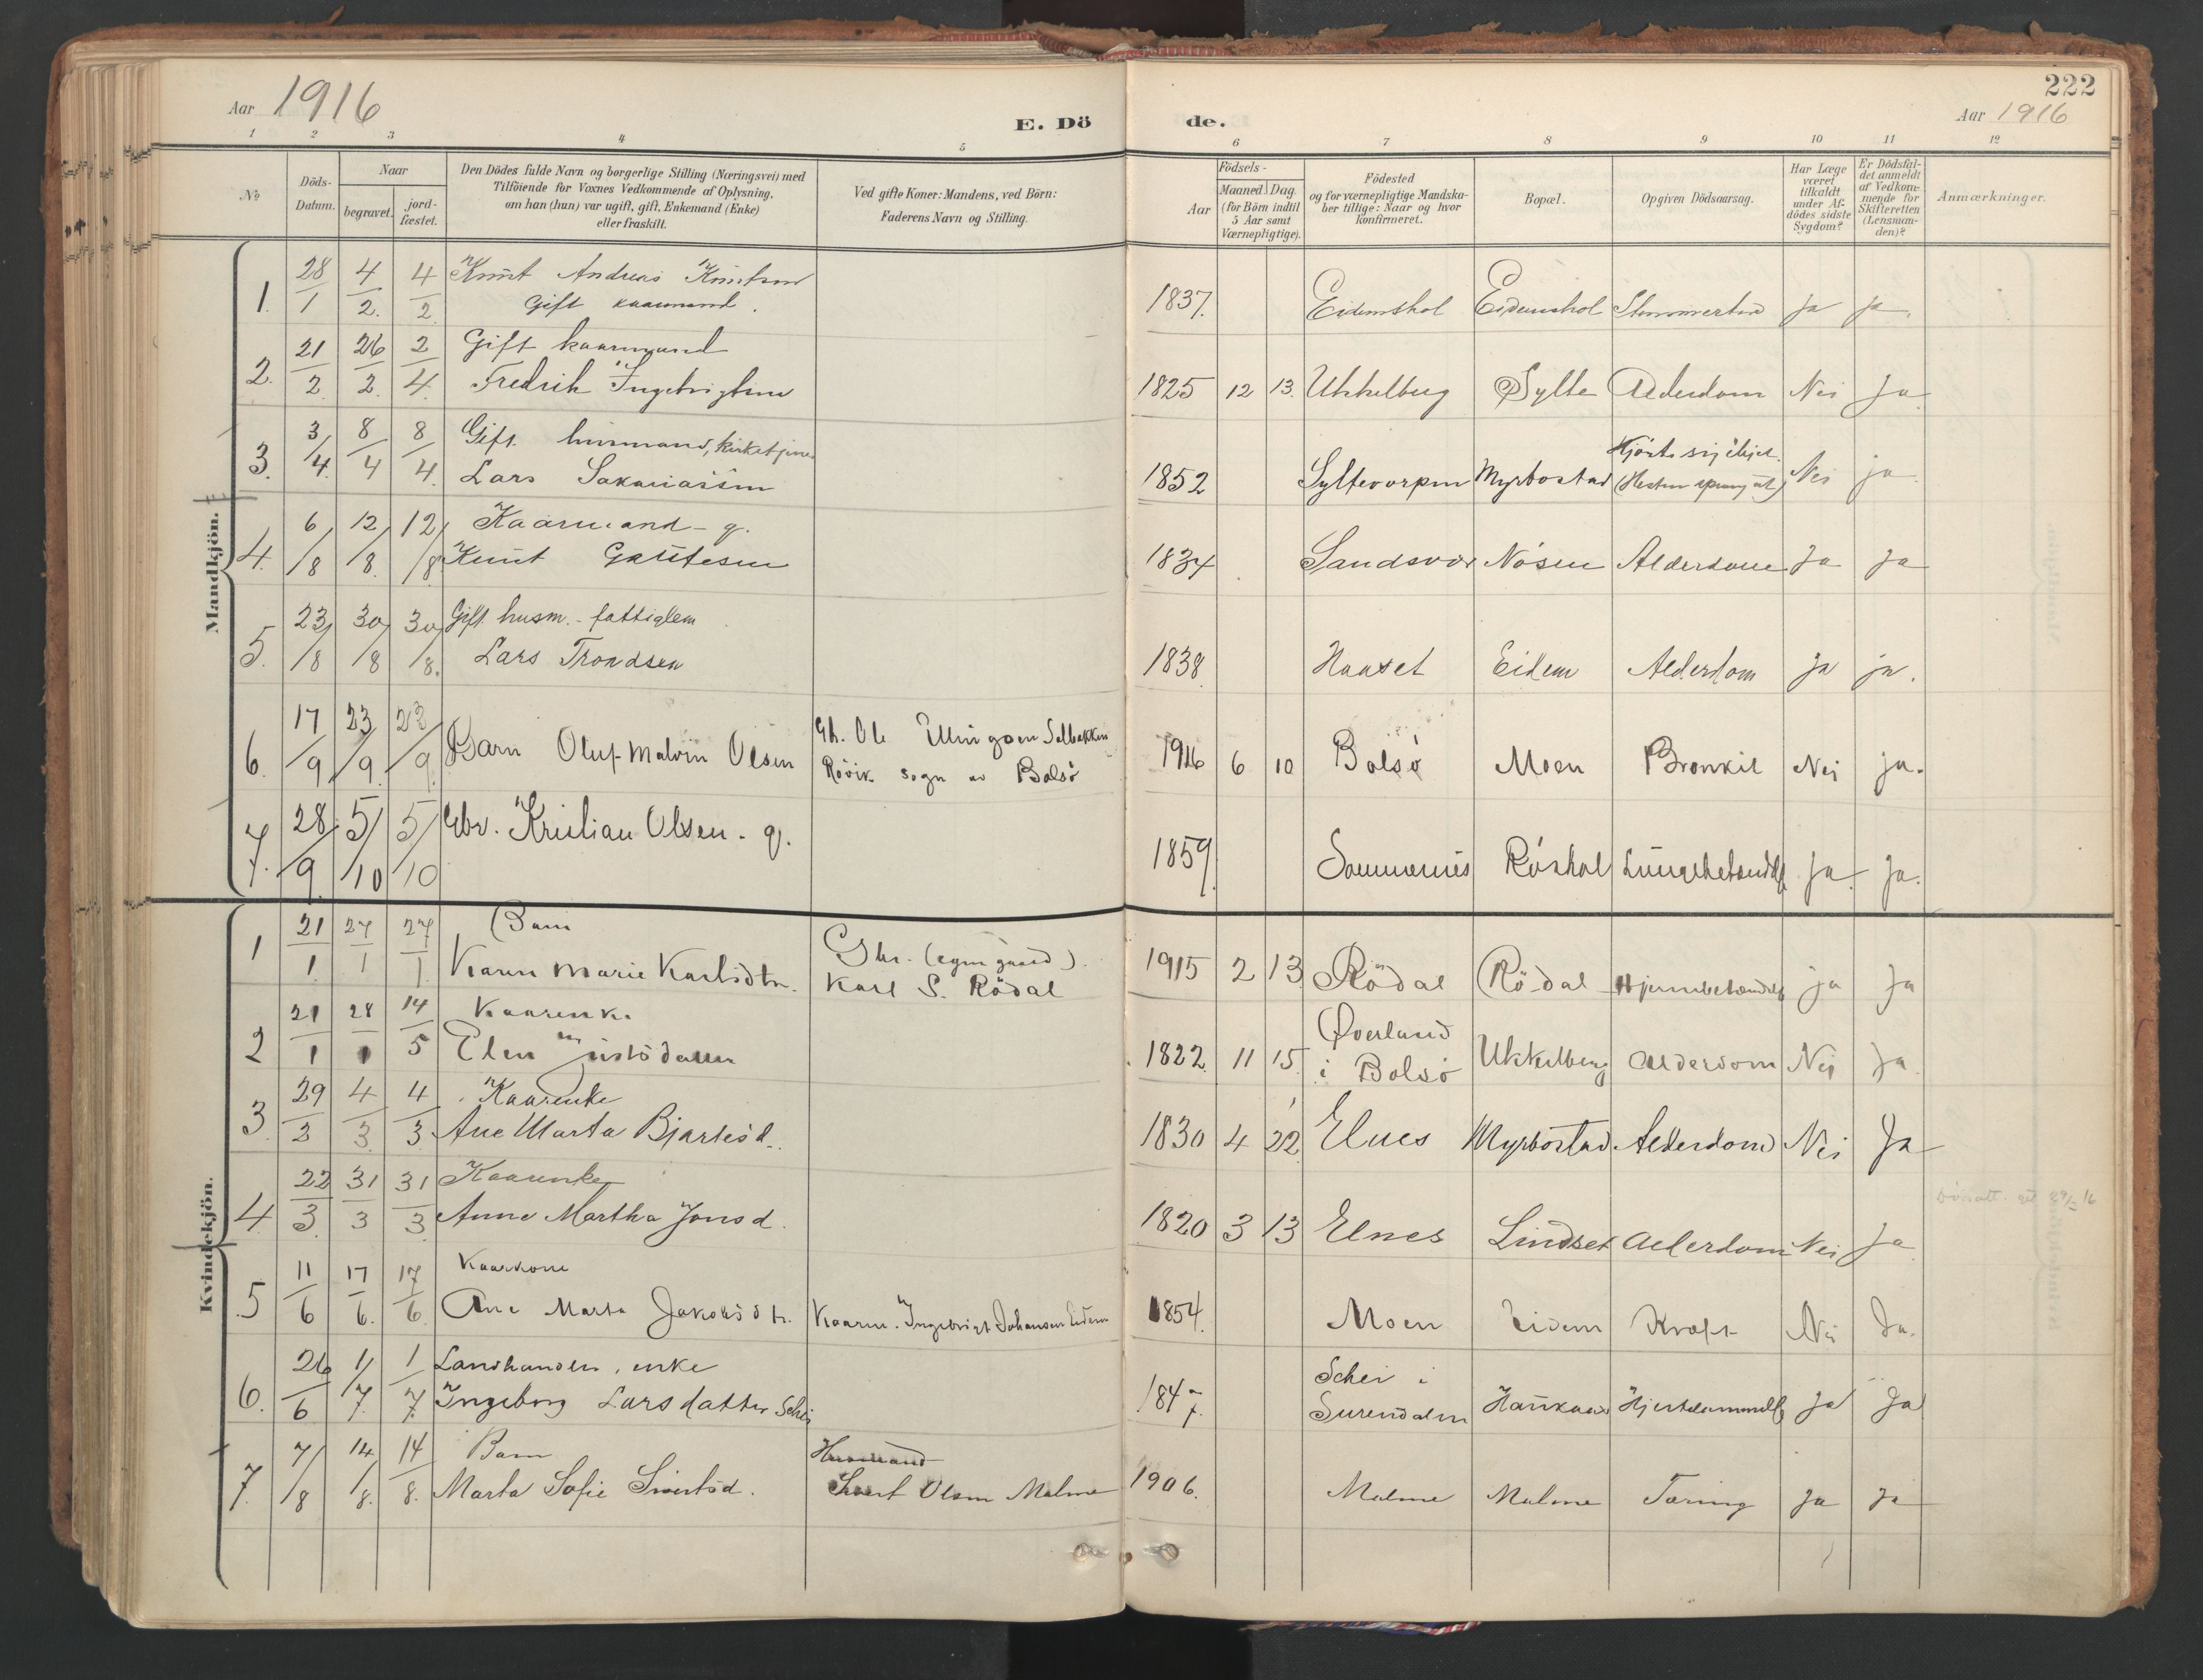 Aar 1916
E. Dö
de.
222
Aar 1916
1 2 3 4 5 6 7 8 9 10 11 12
No
Döds-
Datum.
Naar
begravet.
jord-
fæstet.
Den Dödes fulde Navn og borgerlige Stilling (Næringsvei) med
Tilföiende for Voxnes Vedkommende af Oplysning,
om han (hun) var ugift, gift, Enkemand (Enke)
eller fraskilt.
Ved gifte Koner: Mandens, ved Börn:
Faderens Navn og Stilling.
Aar
Födsels-
Maaned. Dag.
(for Börn indtil
5 Aar samt
Værnepligtige).
Födested
og for værnepligtige Mandska-
ber tillige: Naar og hvor
konfirmeret.
Bopæl.
Opgiven Dödsaarsag.
Har Læge
været
tilkaldt
under Af-
dödes sidste
Sygdom?
Er Dödsfal-
det anmeldt
af Vedkom-
mende for
Skifteretten
(Lensman-
den)?
Anmærkninger.
Mandkjön.
1. 28/1 4/2. 4/2. Knut Andreas Knutsen
Gift kaarmand.
1837. Eidemshol Eidemshol ja ja.
2. 21/2. 26/2. 2/4. Gift kaarmand
Fredrik Ingebrigtsen
1825 12 13. Ukkelberg Sylte Alderdom Nei Ja.
3. 3/4. 8/4 8/4. Gift. husmand, kirketjener
Lars Sakariassen
1852 Sylte Myrbostad
(Hesten sprang ut) Nei ja.
4. 6/8 12/8. 12/8. Kaarmand - g.
Knut Gautesen
1834 Nösen Alderdom Ja Ja
5. 23/8 30/8 30/8. Gift husm. - fattiglem
Lars Trondsen
1838 Haaset Eidem Alderdom ja ja.
6. 17/9 23/9. 23/9. Barn Oluf Malvin Olsen
Gb. Ole Ellingsen Solbakken
Rövik sogn av Bolsö
1916 6 10 Bolsö Moen Bronkit Nei ja.
7. 28/9. 5/10 5/10 Gbr. Kristian Olsen - g.
1859. Sommernes Röshol Lungebetændelse Ja. Ja.
Kvindekjön.
1 21/1. 27/1 27/1. Barn
Karen Marie Karlsdtr.
Gbr. (egen gaard).
Karl S. Rödal
1915 2 13 Rödal Rödal Hjernebetændelse ja Ja
2 21/1 28/1 14/5 Kaarenke
Elen Justsdatter
1822. 11 15. Överland
i Bolsö
Ukkelberg Alderdom Nei Ja.
3. 29/2 4/3. 4/3 Kaarenke
Ane Marta Bjartesd.
1830 4 22. Elnes Myrbostad Alderdom Nei Ja
4. 22/3. 31/3 31/3. Kaarenke
Anne Martha Jonsd.
1820 3 13 Elnes Lindset Alderdom Nei Ja.
5 11/6 17/6. 17/6. Kaarkone
Ane Marta Jakobsdtr.
Kaarm. Ingebrigt Johansen Eidem
1854. Moen Eidem Kræft Nei Ja.
6. 26/6 1/7. 1/7. Landhandler, enke
Ingeborg Larsdatter Schei
1847. Schei i
Surendalen
Ja Ja
7. 7/8 14/8. 14/8. Barn
Marta Sofie Sivertsd.
Husmand
Sivert Olsen Malme
1906. Malme Malme Tæring Ja Ja